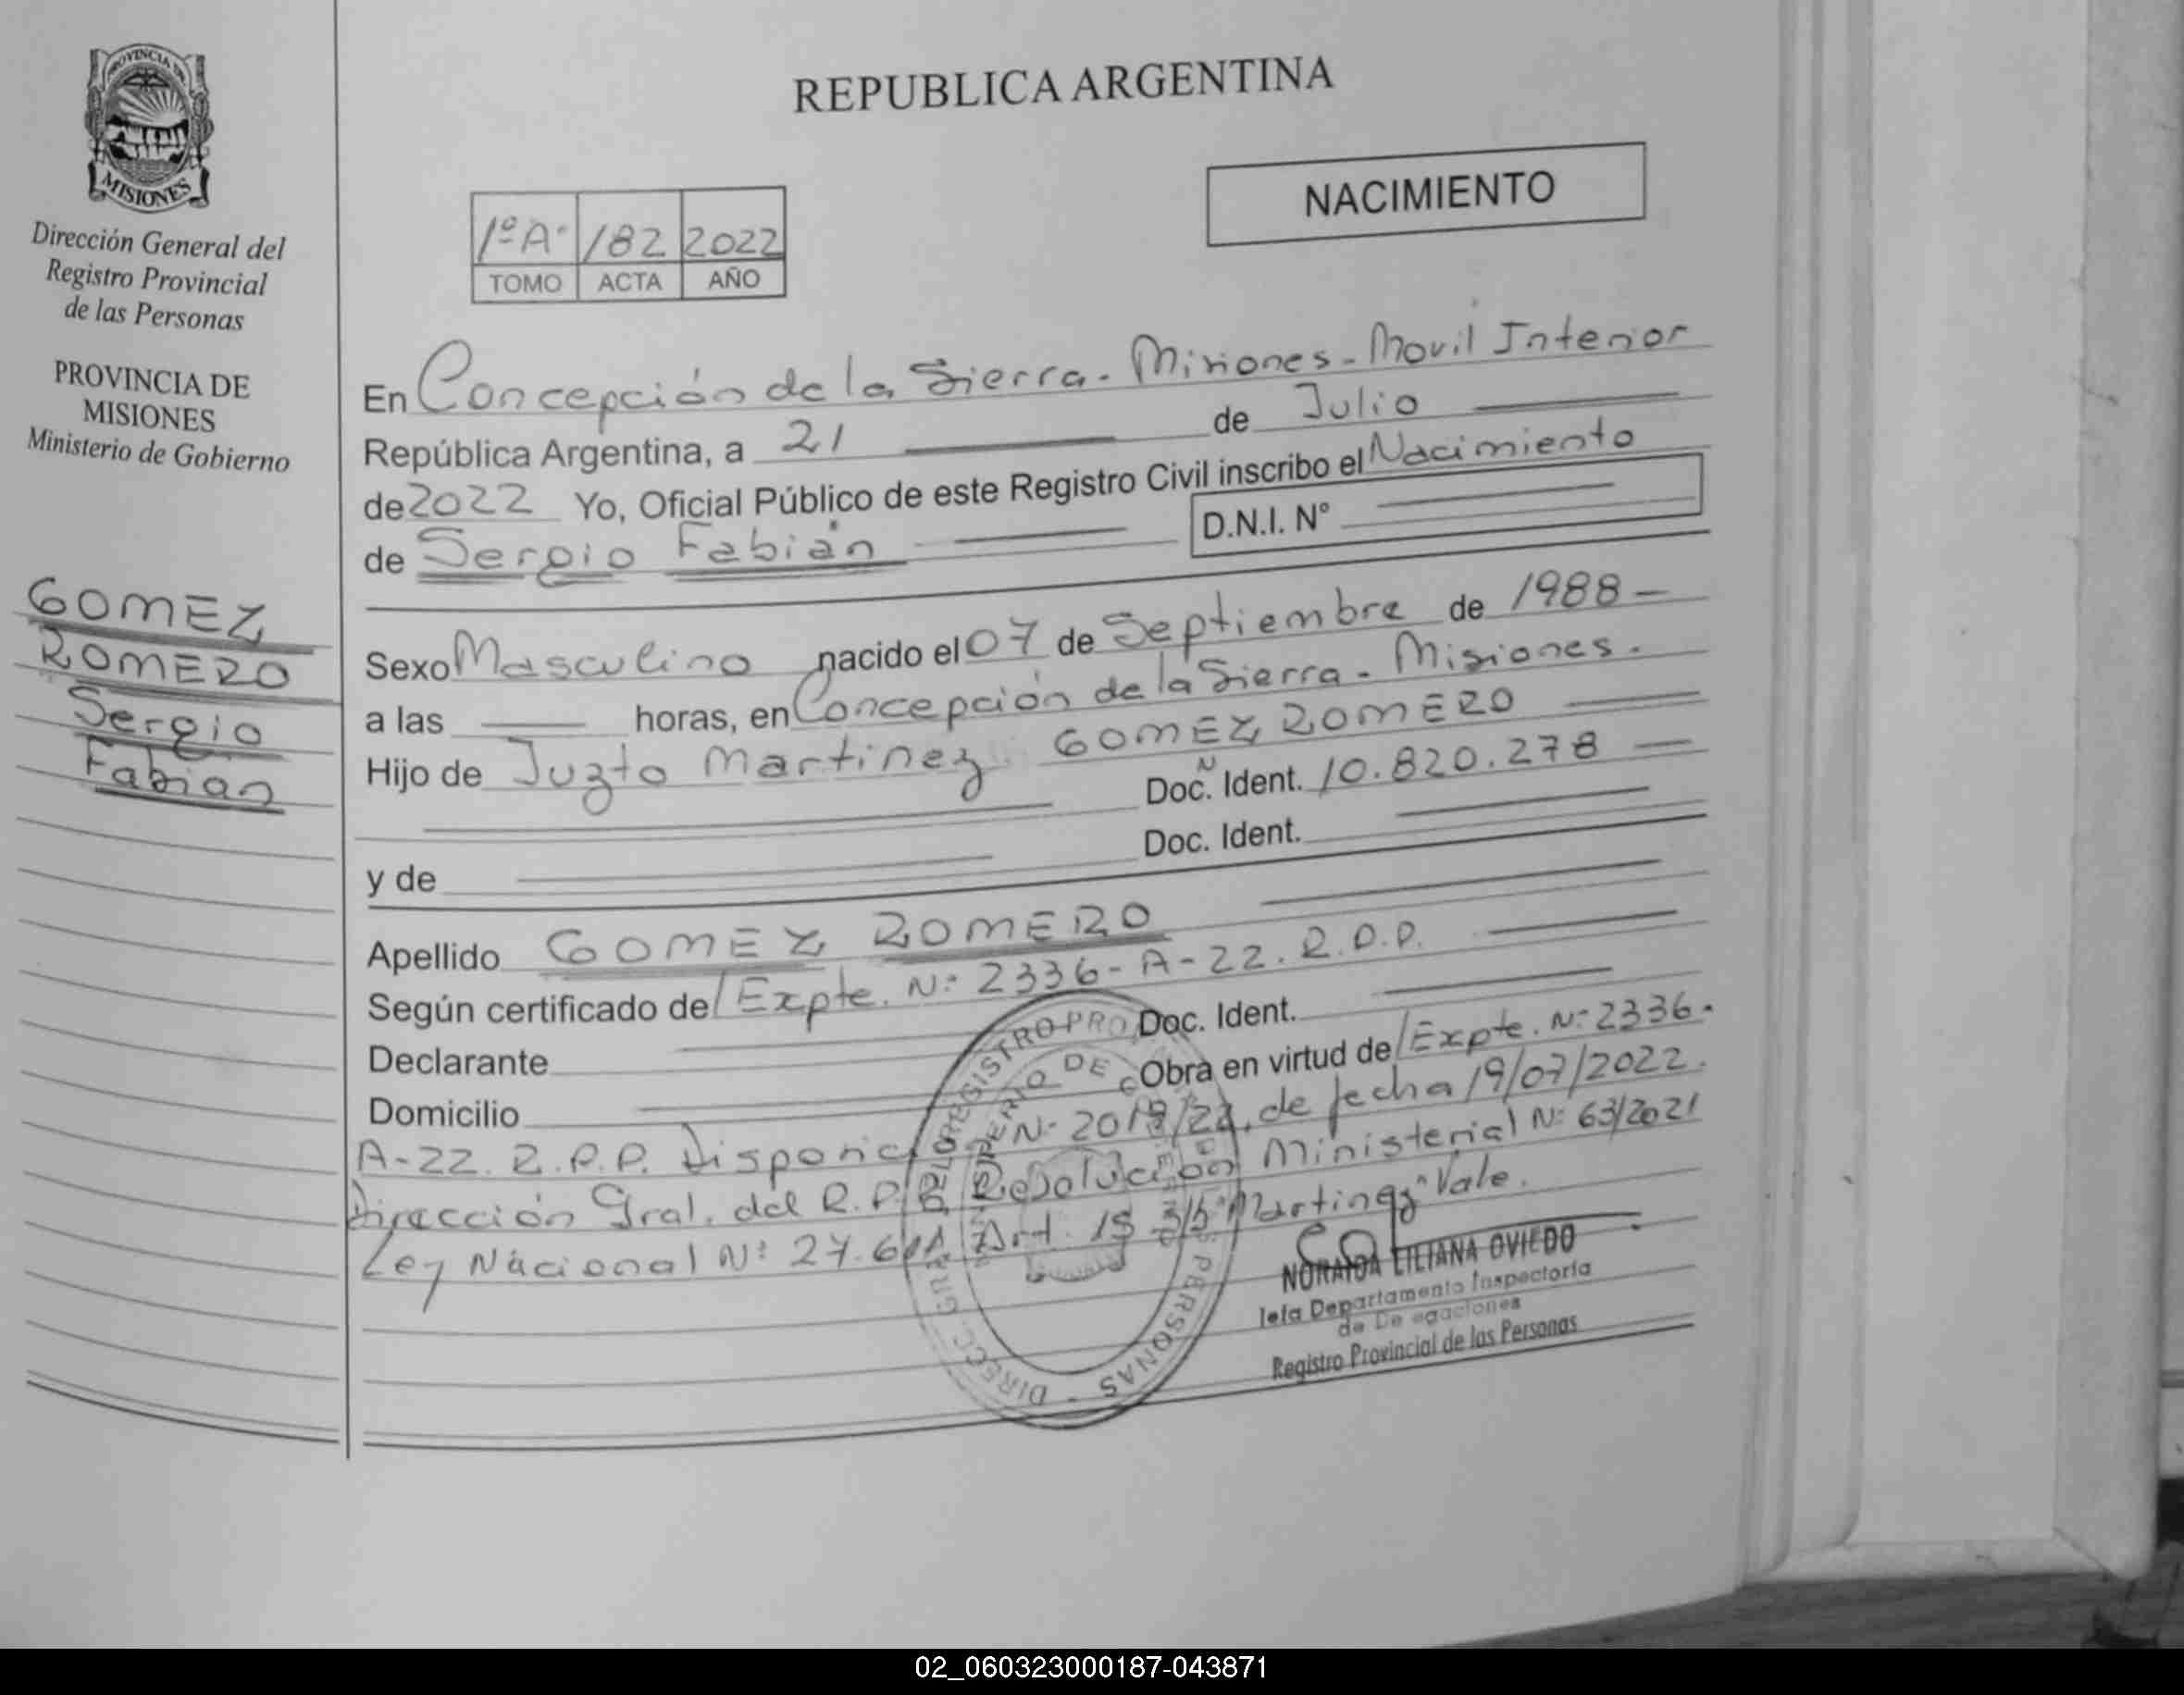 PROVINCIA DE
MISIONES
Dirección General del
Registro Provincial
de las Personas
PROVINCIA DE
MISIONES
Ministerio de Gobierno
GOMEZ
ROMERO
Sergio
Fabian
REPUBLICA ARGENTINA
NACIMIENTO
1º A" 182 2022
TOMO ACTA AÑO
En Concepción de la Sierra - Misiones - Movil Interior
República Argentina, a 21 de Julio
de 2022 Yo, Oficial Público de este Registro Civil inscribo el Nacimiento
de Sergio Fabián D.N.I. Nº
Sexo Masculino nacido el 07 de Septiembre de 1988 -
a las horas, en Concepción de la Sierra - Misiones.
Hijo de Juzto Martinez GOMEZ ROMERO
Doc. Ident. 10.820.278
y de Doc. Ident.
Apellido GOMEZ ROMERO
Según certificado de/ Expte. Nº 2336-A-22. R.P.P.
Declarante Doc. Ident.
Domicilio Obra en virtud de/ Expte. Nº 2336-
A-22. R.P.P. Nº 2019/22, de fecha 19/07/2022.
Dirección Gral. del R.P.P. Resolución Ministerial Nº 63/2021
Ley Nacional Nº 27.611 Art. 15 "Martinez" Vale.
NORAIDA LILIANA OVIEDO
Jefa Departamento Inspectoría
de Delegaciones
Registro Provincial de las Personas
02_060323000187-043871